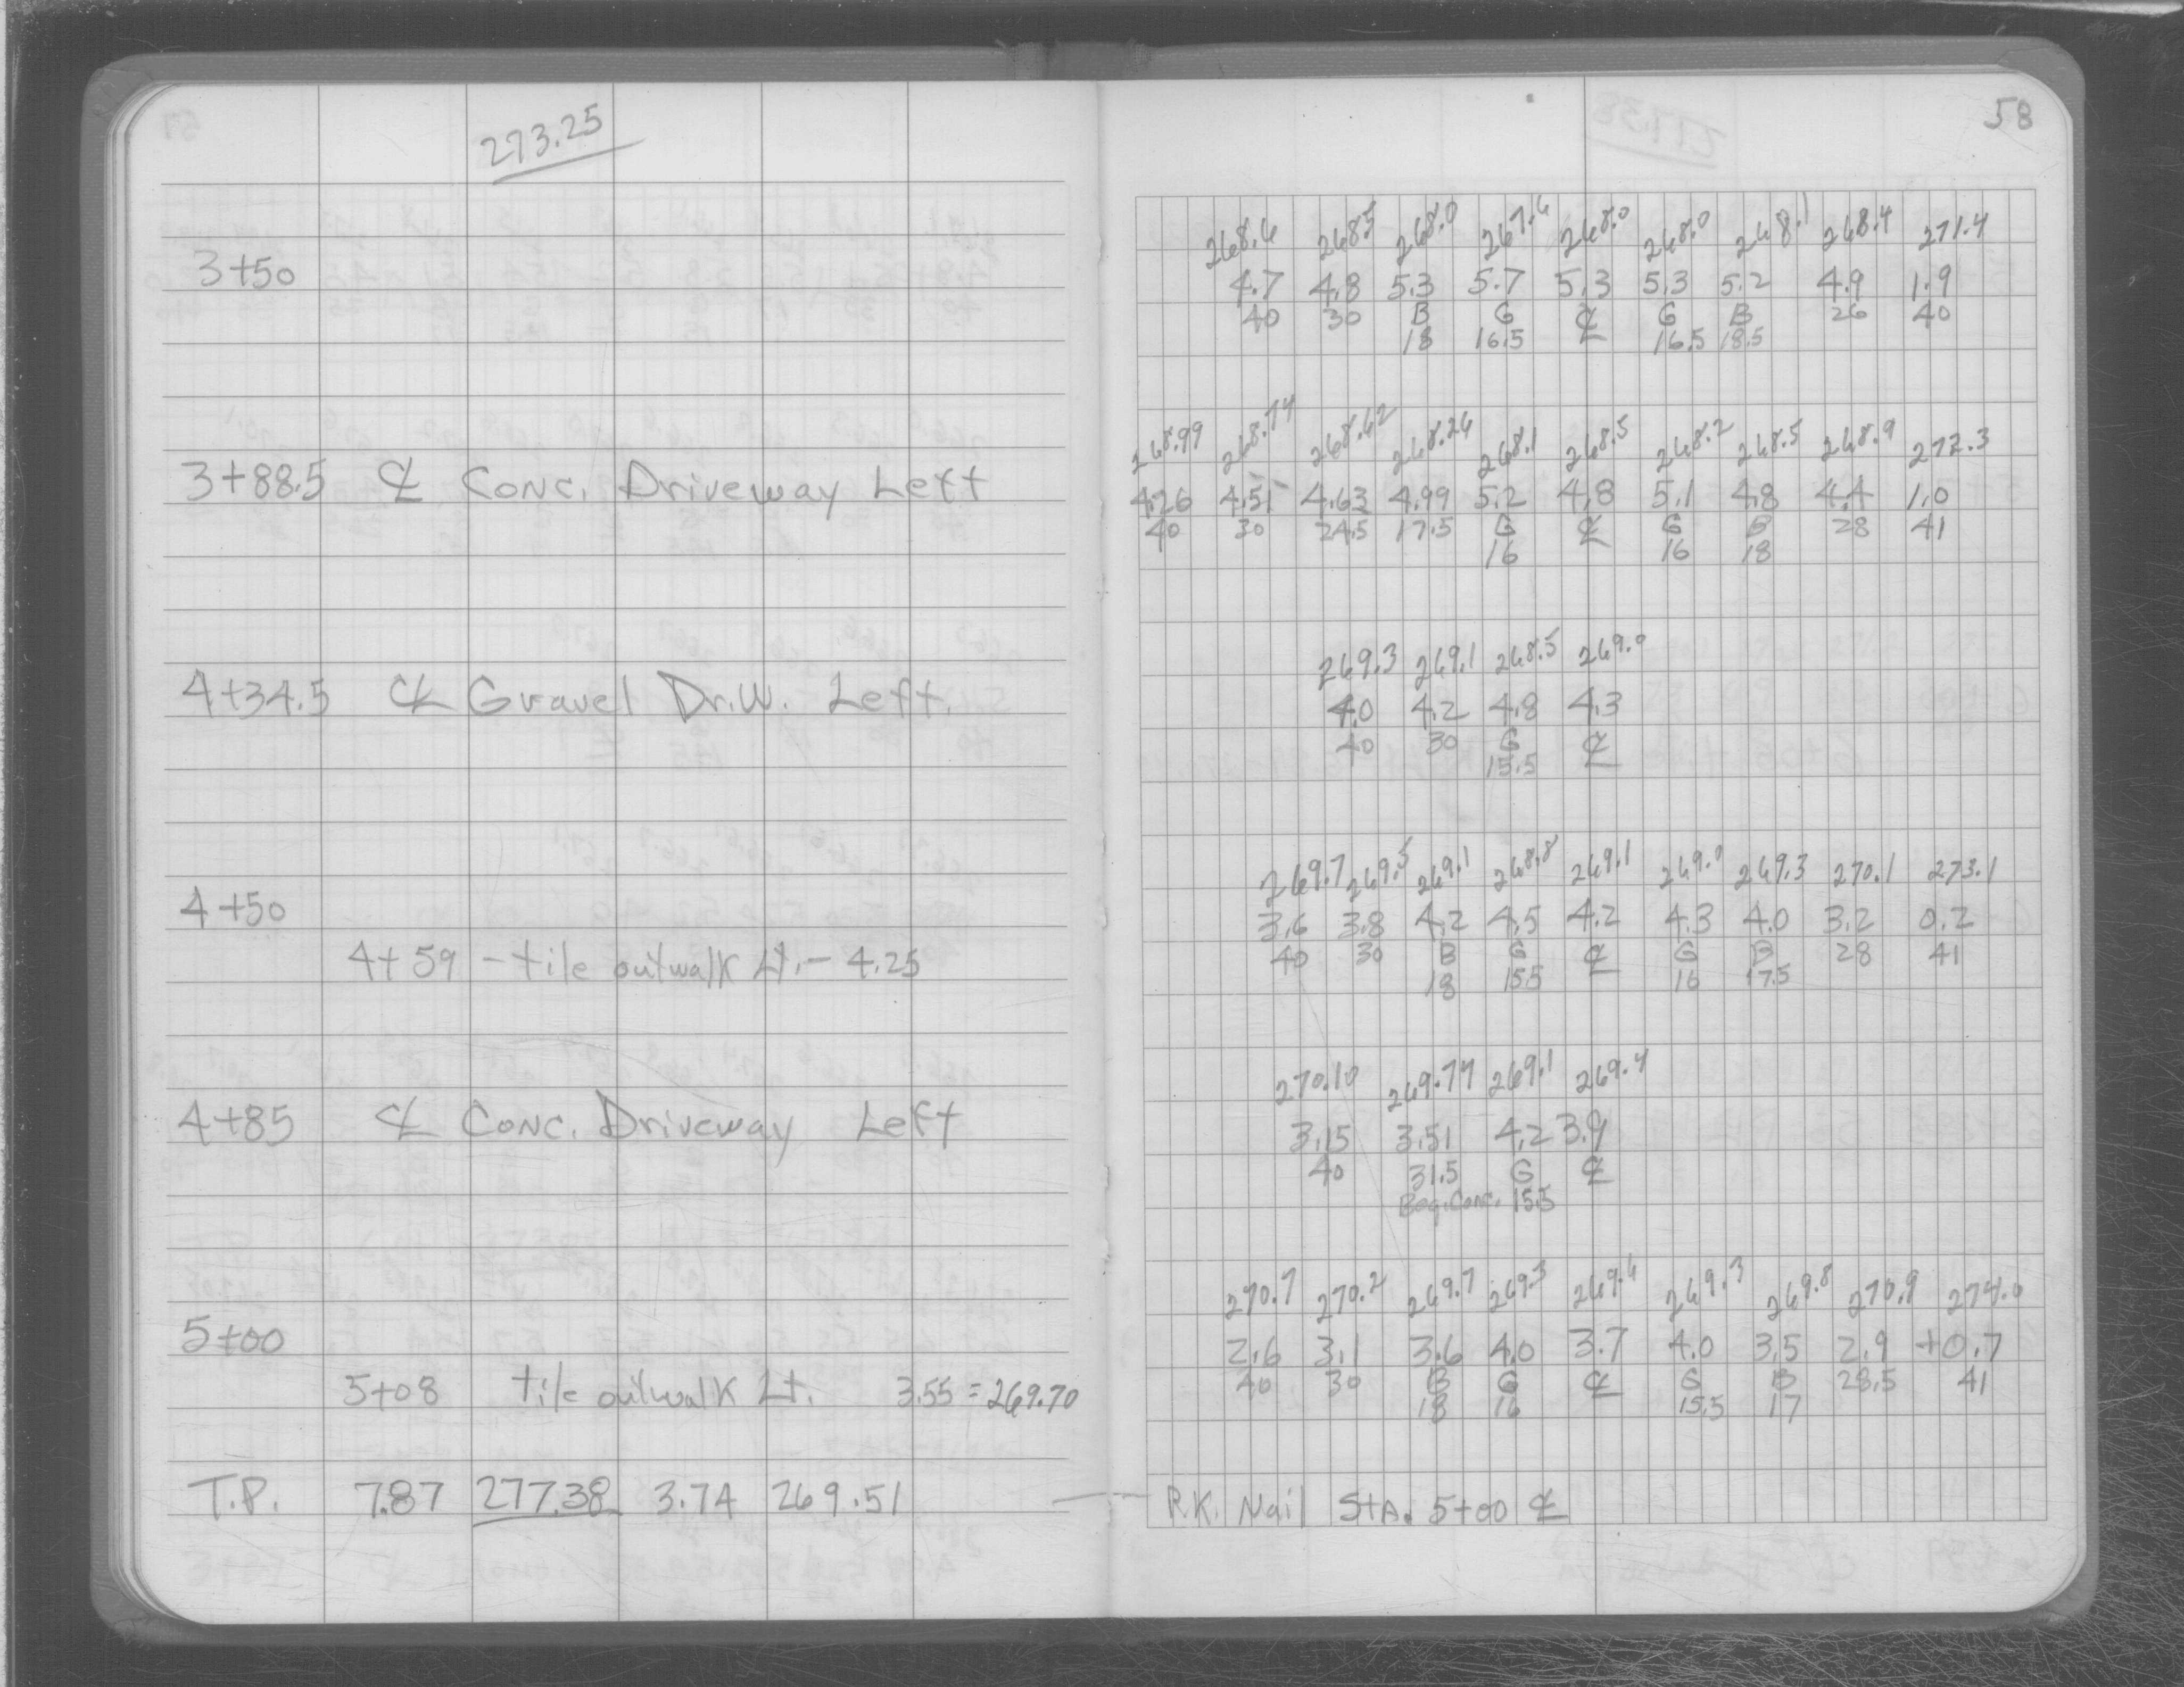 273.25
58
268.6 268.5 268.0 267.6 268.0 268.0 268.1 268.4 271.4
3+50 4.7 4.8 5.3 5.7 5.3 5.3 5.2 4.9 1.9
40 30 B G ℄ G B 26 40
18 16.5 16.5 18.5
268.99 268.74 268.62 268.26 268.1 268.5 268.2 268.5 268.9 272.3
3+88.5 ℄ Conc. Driveway Left 4.26 4.51 4.63 4.99 5.2 4.8 5.1 4.8 4.4 1.0
40 30 24.5 17.5 G ℄ G B 28 41
16 16 18
269.3 269.1 268.5 269.0
4+34.5 ℄ Gravel Dr.W. Left. 4.0 4.2 4.8 4.3
40 30 G ℄
15.5
269.7 269.5 269.1 268.8 269.1 269.0 269.3 270.1 273.1
4+50 3.6 3.8 4.2 4.5 4.2 4.3 4.0 3.2 0.2
4+59 - tile outwalk Lt. - 4.25 40 30 B G ℄ G B 28 41
18 15.5 16 17.5
270.10 269.74 269.1 269.4
4+85 ℄ Conc. Driveway Left 3.15 3.51 4.2 3.9
40 31.5 G ℄
Beg. Conc. 15.5
270.7 270.2 269.7 269.3 269.6 269.3 269.8 270.9 274.0
5+00 2.6 3.1 3.6 4.0 3.7 4.0 3.5 2.9 +0.7
5+08 tile outwalk Lt. 3.55 = 269.70 40 30 B G ℄ G B 28.5 41
18 16 15.5 17
T.P. 7.87 277.38 3.74 269.51 P.K. Nail STA. 5+00 ℄